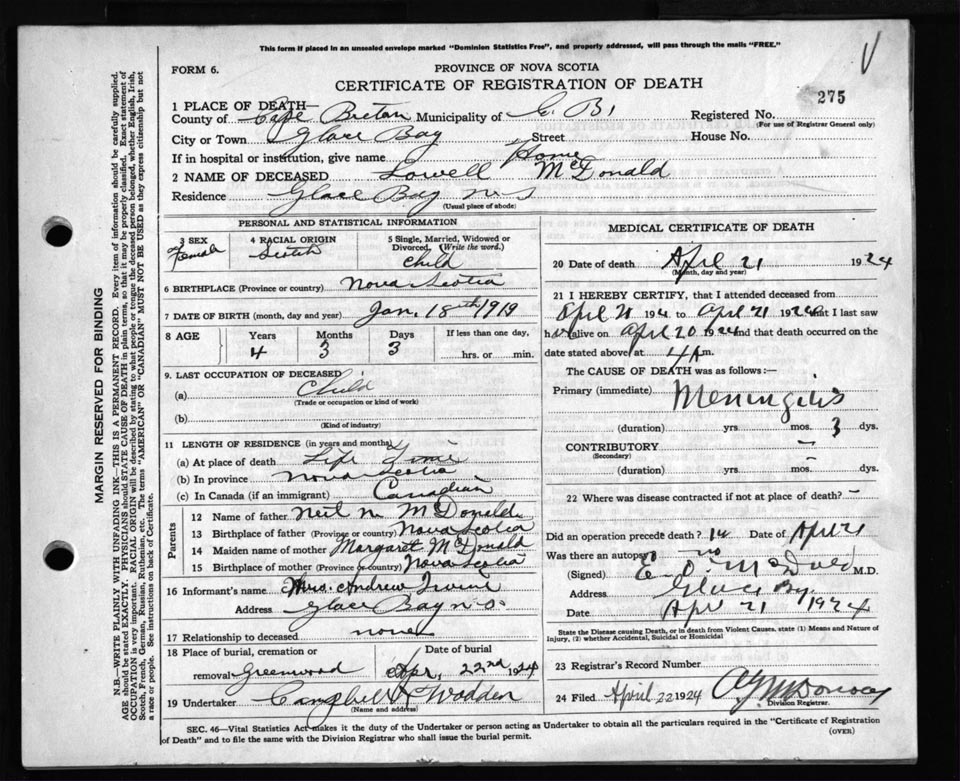 This form if placed in an unsealed envelope marked "Dominion Statistics Free", and properly addressed, will pass through the mails "FREE."
FORM 6.
PROVINCE OF NOVA SCOTIA
CERTIFICATE OF REGISTRATION OF DEATH
275
1 PLACE OF DEATH—
County of Cape Breton Municipality of C. B. Registered No.
(For use of Registrar General only)
City or Town Glace Bay Street House No.
If in hospital or institution, give name Home
2 NAME OF DECEASED Lowell McDonald
Residence Glace Bay N S
(Usual place of abode)
PERSONAL AND STATISTICAL INFORMATION
3 SEX Female
4 RACIAL ORIGIN Scotch
5 Single, Married, Widowed or Divorced. (Write the word.) Child
6 BIRTHPLACE (Province or country) Nova Scotia
7 DATE OF BIRTH (month, day and year) Jan. 18th 1919
8 AGE Years Months Days If less than one day,
4 3 3 hrs. or min.
9. LAST OCCUPATION OF DECEASED
(a) Child
(Trade or occupation or kind of work)
(b)
(Kind of industry)
11 LENGTH OF RESIDENCE (in years and months)
(a) At place of death Life Time
(b) In province Nova Scotia
(c) In Canada (if an immigrant) Canadian
Parents
12 Name of father Neil M McDonald
13 Birthplace of father (Province or country) Nova Scotia
14 Maiden name of mother Margaret McDonald
15 Birthplace of mother (Province or country) Nova Scotia
16 Informant's name Mrs. Andrew Irvine
Address Glace Bay N S
17 Relationship to deceased none
18 Place of burial, cremation or removal Greenwood
Date of burial Apr, 22nd 1924
19 Undertaker Campbell Wadden
(Name and address)
MEDICAL CERTIFICATE OF DEATH
20 Date of death April 21 1924
(Month, day and year)
21 I HEREBY CERTIFY, that I attended deceased from
April 192 to April 21 1924 that I last saw
h alive on April 20 1924 and that death occurred on
date stated above at 4 A m.
The CAUSE OF DEATH was as follows:—
Primary (immediate) Meningitis
(duration) yrs. mos. 3 dys.
CONTRIBUTORY –
(Secondary)
(duration) yrs. – mos. dys.
22 Where was disease contracted if not at place of death? –
Did an operation precede death? Date of April 21
Was there an autopsy no
(Signed) M.D.
Address Glace Bay
Date Apr 21 1924
State the Disease causing Death, or in death from Violent Causes, state (1) Means and Nature of Injury, (2) whether Accidental, Suicidal or Homicidal
23 Registrar's Record Number
24 Filed April 22 1924
Division Registrar.
SEC. 46—Vital Statistics Act makes it the duty of the Undertaker or person acting as Undertaker to obtain all the particulars required in the "Certificate of Registration
of Death" and to file the same with the Division Registrar who shall issue the burial permit.
(OVER)
MARGIN RESERVED FOR BINDING
N.B.—WRITE PLAINLY WITH UNFADING INK—THIS IS A PERMANENT RECORD. Every item of information should be carefully supplied.
AGE should be stated EXACTLY. PHYSICIANS should STATE CAUSE OF DEATH in plain terms, so that it may be properly classified. Exact statement of
OCCUPATION is very important. RACIAL ORIGIN will be described by stating to what people or tongue the deceased person belonged, whether English, Irish,
Scotch, French, German, Russian, Ruthenian, etc. The terms "AMERICAN" OR "CANADIAN" MUST NOT BE USED as they express citizenship but not
a race or people. See instructions on back of Certificate.